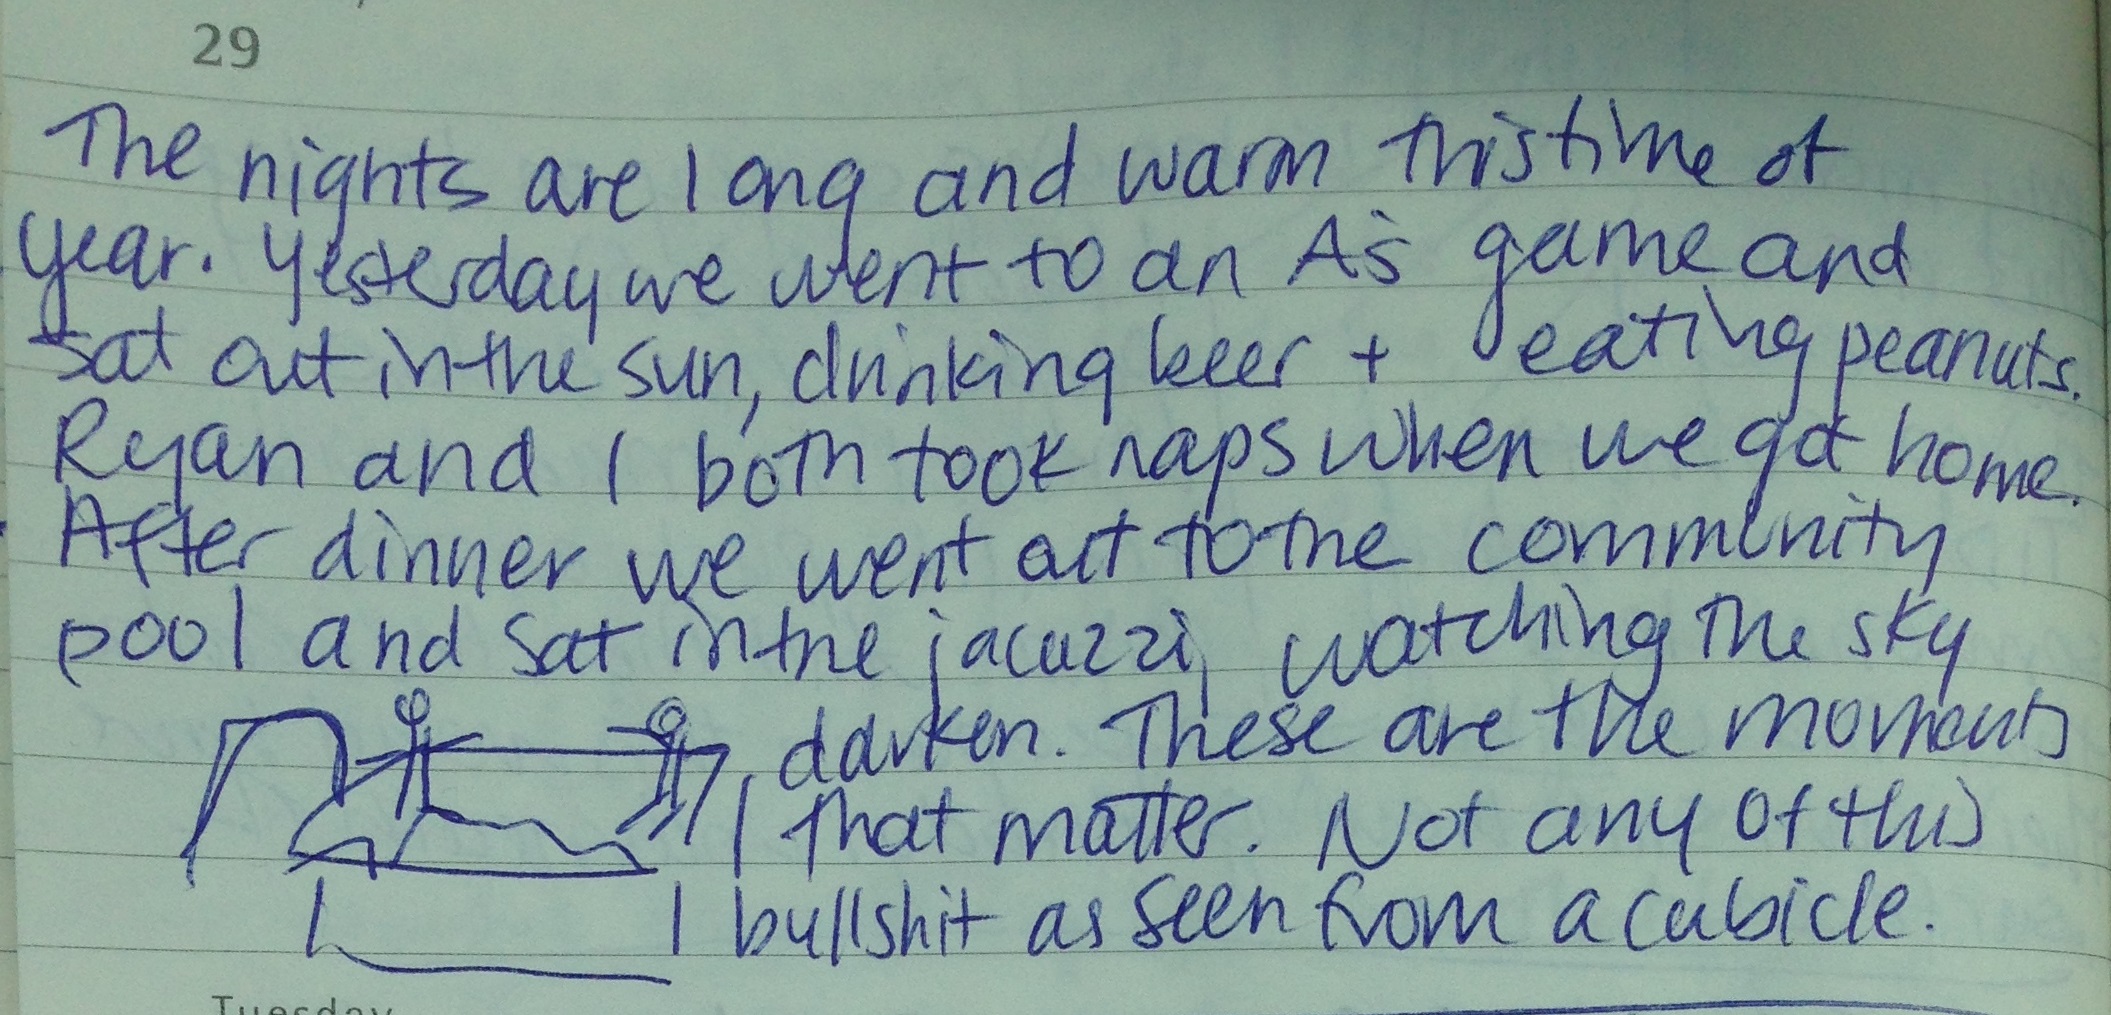 29
The nights are long and warm this time of
year. Yesterday we went to an A's game and
sat out in the sun, drinking beer + eating peanuts.
Ryan and I both took naps when we got home.
After dinner we went out to the community
pool and sat in the jacuzzi, watching the sky
darken. These are the moments
that matter. Not any of this
bullshit as seen from a cubicle.
Tuesday